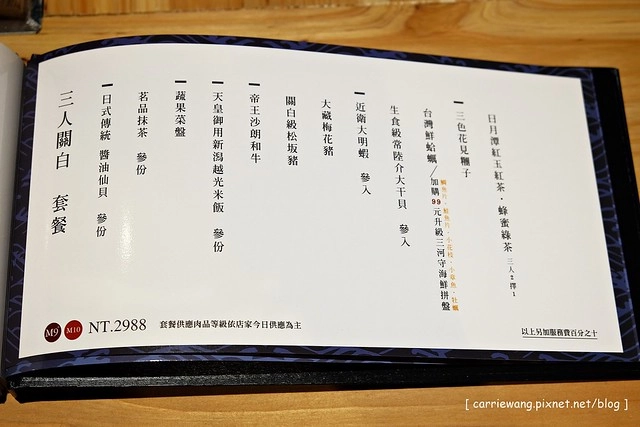 三人關白 套餐
日式傳統 醬油仙貝 參份
茗品抹茶 參份
蔬果菜盤
天皇御用新潟越光米飯 參份
帝王沙朗和牛
關白級松坂豬
大藏梅花豬
近衛大明蝦 參入
生食級常陸介大干貝 參入
台灣鮮蛤蠣/加購99元升級三河守海鮮拼盤
鯛魚片、鮭魚片、小花枝、小章魚、牡蠣
三色花見糰子
日月潭紅玉紅茶・蜂蜜綠茶 三人2擇1
M9 M10 NT.2988 套餐供應肉品等級依店家今日供應為主
以上另加服務費百分之十
[ carriewang.pixnet.net/blog ]